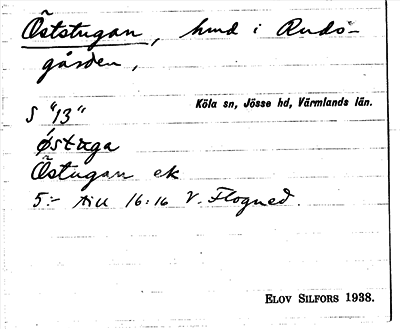 Öststugan, hmd i Rudsgården,
Köla sn, Jösse hd, Värmlands län.
S "13"
østuga
Östugan ek
5:- till 16:16 V. Flogned.
ELOV SILFORS 1938.